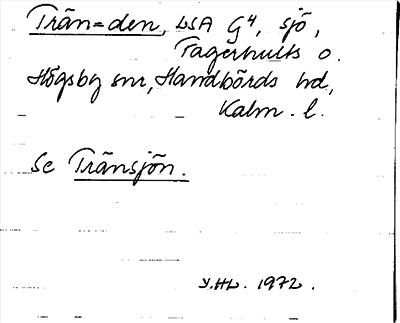 Trän=den, LSA G4, sjö,
Fagerhults o.
Högsby snr, Handbörds hd,
Kalm. l.
Se Tränsjön.
Y.HL. 1972.